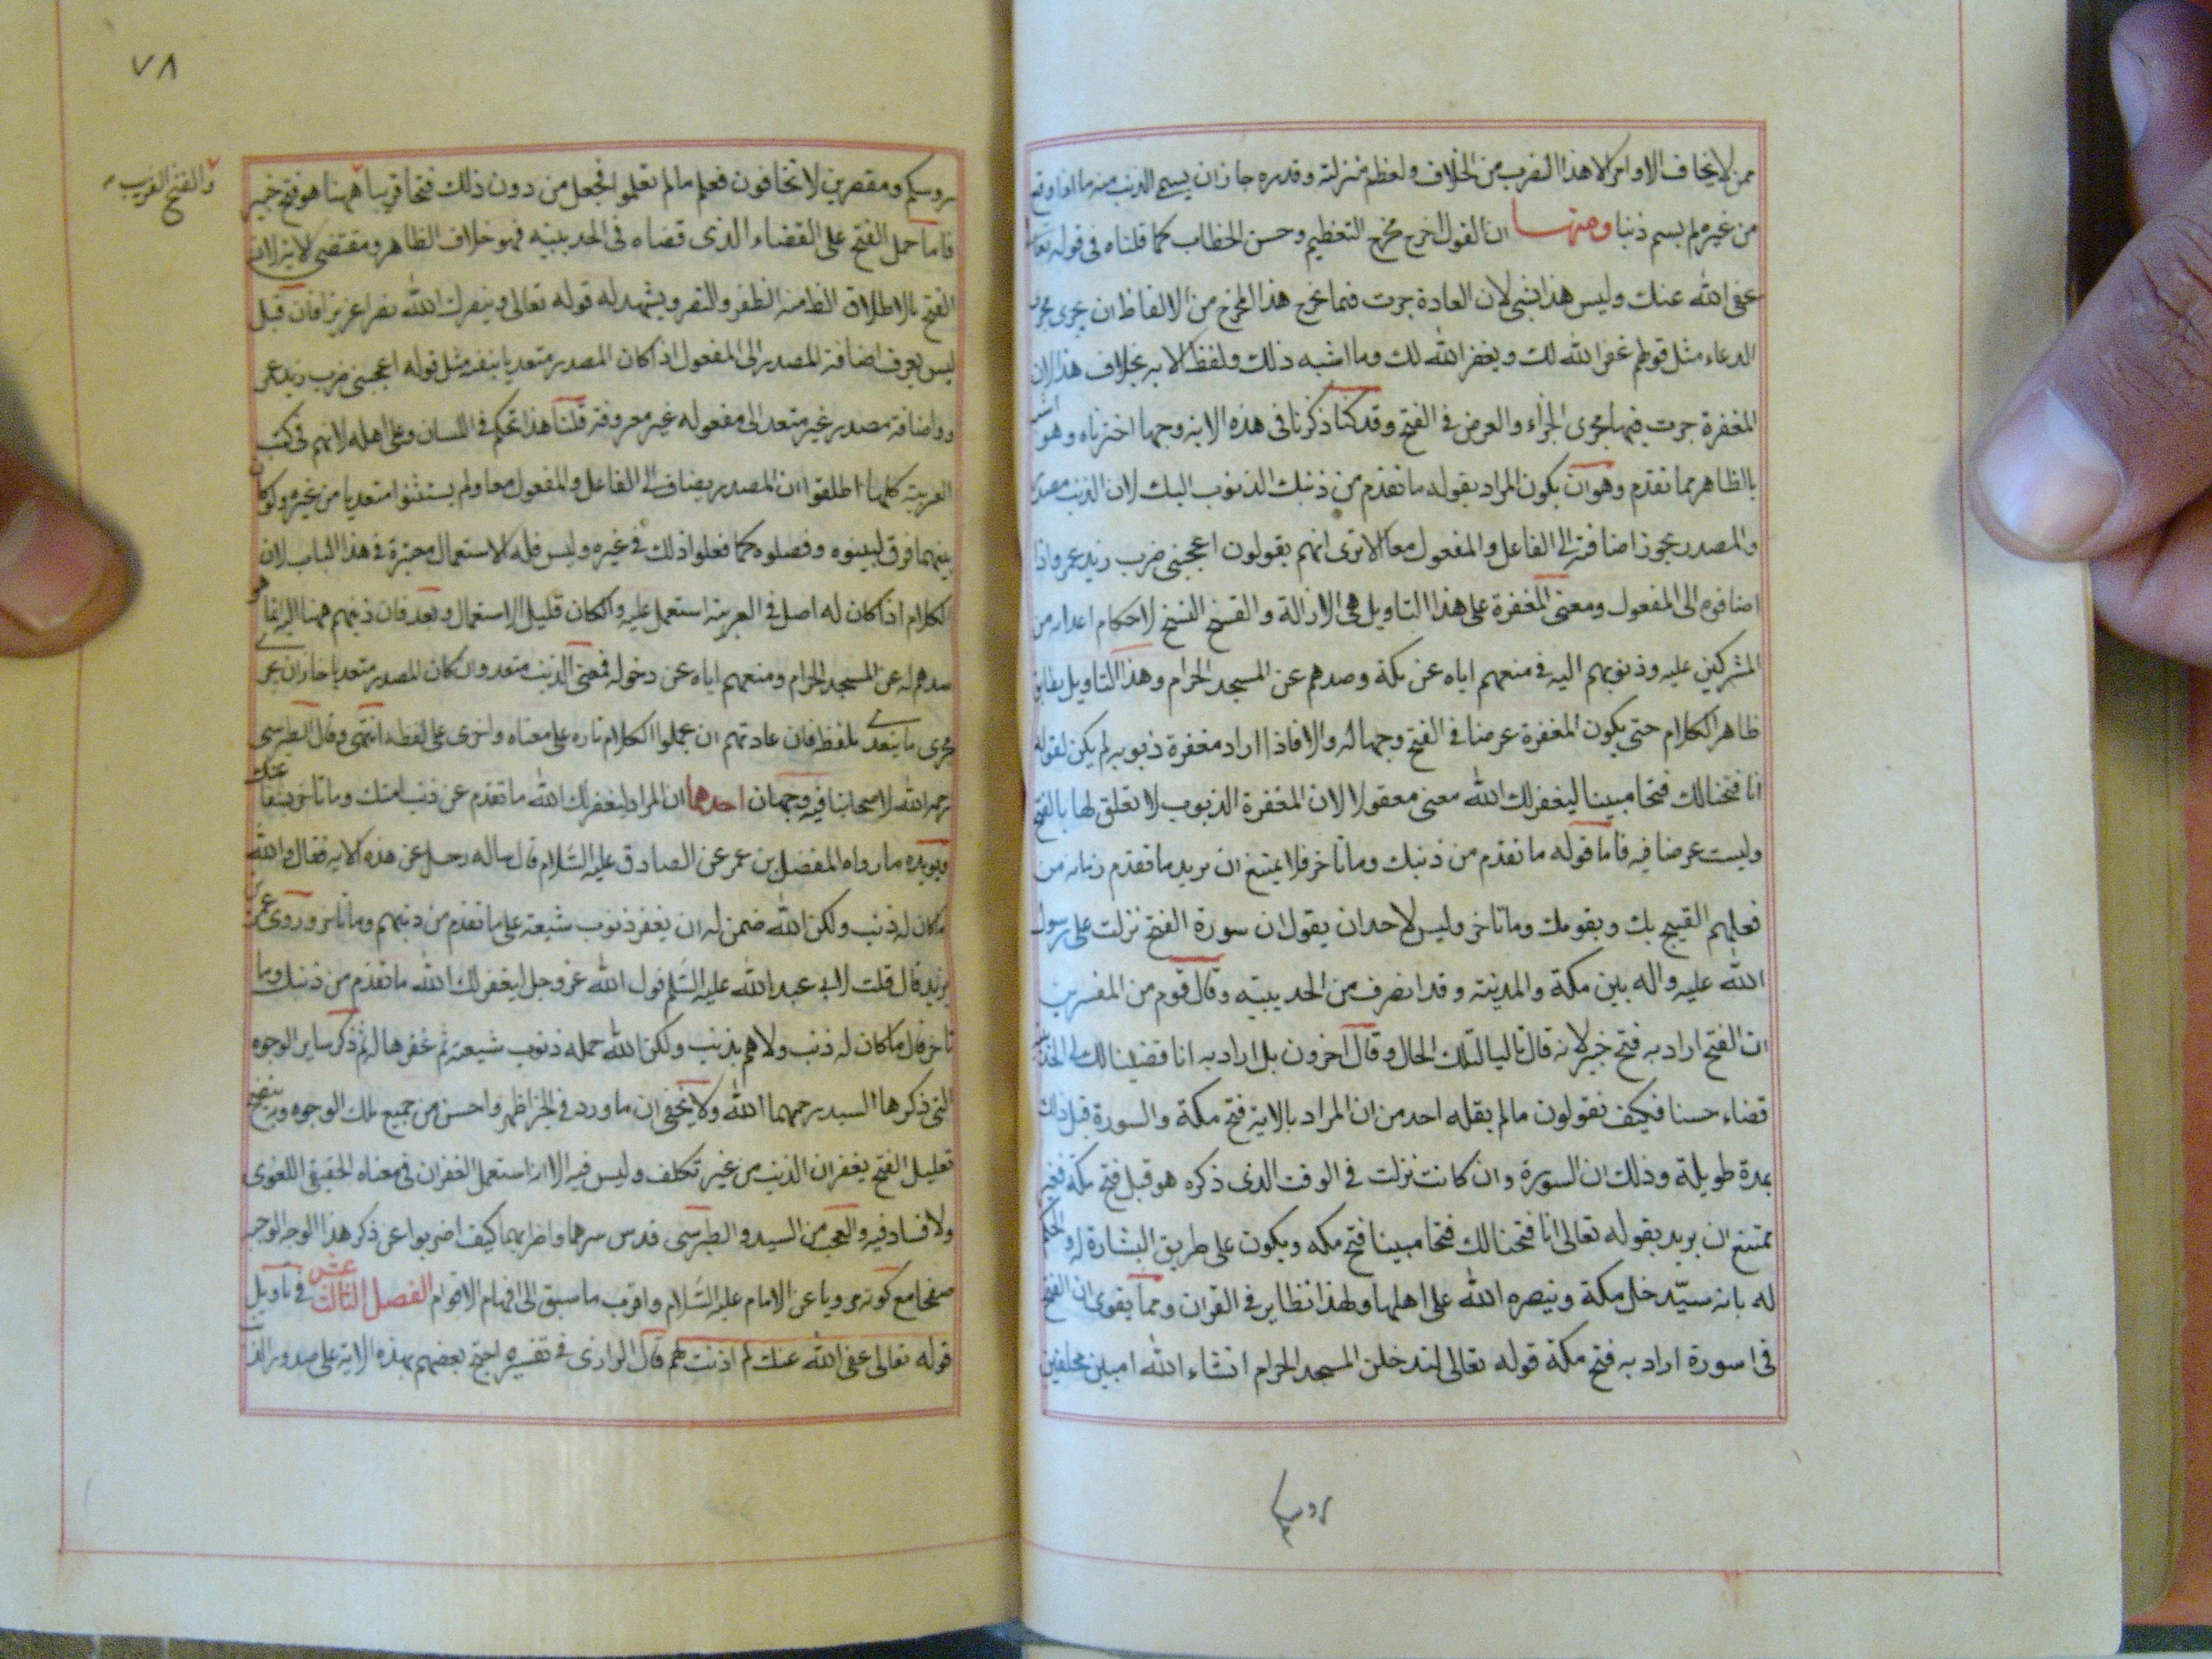 ممن لا يخالف الاوامر الا هذا الضرب من الخلاف ولعظم منزلته وقدره جاز ان يسمى الذنب منه ما اذا وقع
من غيره لم يسم ذنبا ومنها ان القول خرج مخرج التعظيم وحسن الخطاب كما قلناه في قوله تعالى
عفى الله عنك وليس هذا بشئ لان العادة جرت فيما يخرج هذا المخرج من الالفاظ ان يجرى مجرى
الدعاء مثل قولهم غفر الله لك ويغفر الله لك وما اشبه ذلك ولفظ الاية بخلاف هذا لان
المغفرة جرت فيها مجرى الجزاء والعرض في الفتح وقد كنا ذكرنا في هذه الاية وجها اخترناه وهو اشبه
بالظاهر مما تقدم وهو ان يكون المراد بقوله ما تقدم من ذنبك الذنوب اليك لان الذنب مصدر
والمصدر يجوز اضافته الى الفاعل والمفعول معا الا ترى انهم يقولون اعجبني ضرب زيد عمرو اذا
اضافوه الى المفعول ومعنى المغفرة على هذا التاويل هي الازالة والفسخ النسخ لاحكام اعدائه من
المشركين عليه وذنوبهم اليه في منعهم اياه عن مكة وصدهم عن المسجد الحرام وهذا التاويل يطابق
ظاهر الكلام حتى يكون المغفرة عرضا في الفتح وجها له والا فاذا اراد مغفرة ذنوبه لم يكن لقوله
انا فتحنا لك فتحا مبينا ليغفر لك الله معنى معقولا لان المغفرة الذنوب لا تعلق لها بالفتح
وليست عرضا فيه فاما قوله ما تقدم من ذنبك وما تاخر فلا يمتنع ان يريد ما تقدم زمانه من
فعلهم القبيح بك وبقومك وما تاخر وليس لاحد ان يقول ان سورة الفتح نزلت على رسول
الله عليه واله بين مكة والمدينة وقد انصرف من الحديبية وقال قوم من المفسرين
ان الفتح اراد به فتح خيبر لانه قال تاليا لتلك الحال وقال اخرون بل اراد به انا قضينا لك في الحديبية
قضاء حسنا فكيف تقولون ما لم يقله احد من ان المراد بالاية فتح مكة والسورة قبل ذلك
بمدة طويلة وذلك ان السورة وان كانت نزلت في الوقت الذي ذكره هو قبل فتح مكة فغير
ممتنع ان يريد بقوله تعالى انا فتحنا لك فتحا مبينا فتح مكه ويكون على طريق البشارة له والحكم
له بانه سيدخل مكة وينصره الله على اهلها ولهذا نظاير في القران ومما يقوى ان الفتح
في اسورة اراد به فتح مكة قوله تعالى لتدخلن المسجد الحرام انشاء الله امنين محلقين
روسكم
٧٨
روسكم ومقصرين لا تخافون فعلم ما لم تعلموا فجعل من دون ذلك فتحا قريبا ههنا هو فتح خيبر
والفتح القريب
فاما حمل الفتح على القضاء الذي قضاه في الحديبيه فهو خلاف الظاهر ومقتضى الاية لان
الفتح بالاطلاق الظ منه الظفر والنصر ويشهد له قوله تعالى وينصرك الله نصرا عزيزا فان قيل
ليس يعرف اضافة المصدر الى المفعول اذا كان المصدر متعديا بنفسه مثل قوله اعجبني ضرب زيد عمر
واضافة مصدر غير متعد الى مفعوله غير معروفة قلنا هذا تحكم في اللسان وعلى اهله لانهم في كتب
العربية كلها اطلقوا ان المصدر يضاف الى الفاعل والمفعول معا ولم يستثنوا متعديا من غيره ولو كان
بينهما فرق لبينوه وفصلوه كما فعلوا ذلك في غيره وليس قلة الاستعمال معتبرة في هذا الباب لان
الكلام اذا كان له اصل في العربية استعمل عليه وان كان قليل الاستعمال وبعد فان ذنبهم ههنا اليه انما هو
صدهم له عن المسجد الحرام ومنعهم اياه عن دخوله فمعنى الذنب متعد وان كان المصدر متعديا جاز ان يجرى
مجرى ما يتعدى بلفظه فان عادتهم ان يحملوا الكلام تاره على معناه واخرى على لفظه انتهى وقال الطبرسي
رحمه الله لاصحابنا فيه وجهان احدهما ان المراد ليغفر لك الله ما تقدم عن ذنب امتك وما تاخر بشفاعتك
ويويده ما رواه المفضل بن عمر عن الصادق عليه السلام قال ساله رجل عن هذه الايه فقال والله
ماكان له ذنب ولكن الله ضمن له ان يغفر ذنوب شيعة على ما تقدم من ذنبهم وما تاخر وروى عمر بن
يزيد قال قلت لابي عبد الله عليه السلم قول الله عز وجل ليغفر لك الله ما تقدم من ذنبك وما
تاخر قال ما كان له ذنب ولا هم بذنب ولكن الله حمله ذنوب شيعته ثم غفرها له ثم ذكر ساير الوجوه
التي ذكرها السيد رحمهما الله ولا يخفى ان ما ورد في الخبر اظهر واحسن من جميع تلك الوجوه وبه يتضح
تعليل الفتح بغفران الذنب من غير تكلف وليس فيه الا انه استعمل الغفران في معناه الحقيقي اللغوى
ولا فساد فيه والعجب من السيد والطبرسى قدس سرهما واضرابهما كيف اضربوا عن ذكر هذا الوجه الوجيه
صفحا مع كونه مرويا عن الامام عليه السلام واقرب ما سبق الى افهام الاقوام الفصل الثالث عشر في تاويل
قوله تعالى عفى الله عنك لم اذنت لهم قال الرازى في تفسيره احتج بعضهم بهذه الاية على صدور الذنب